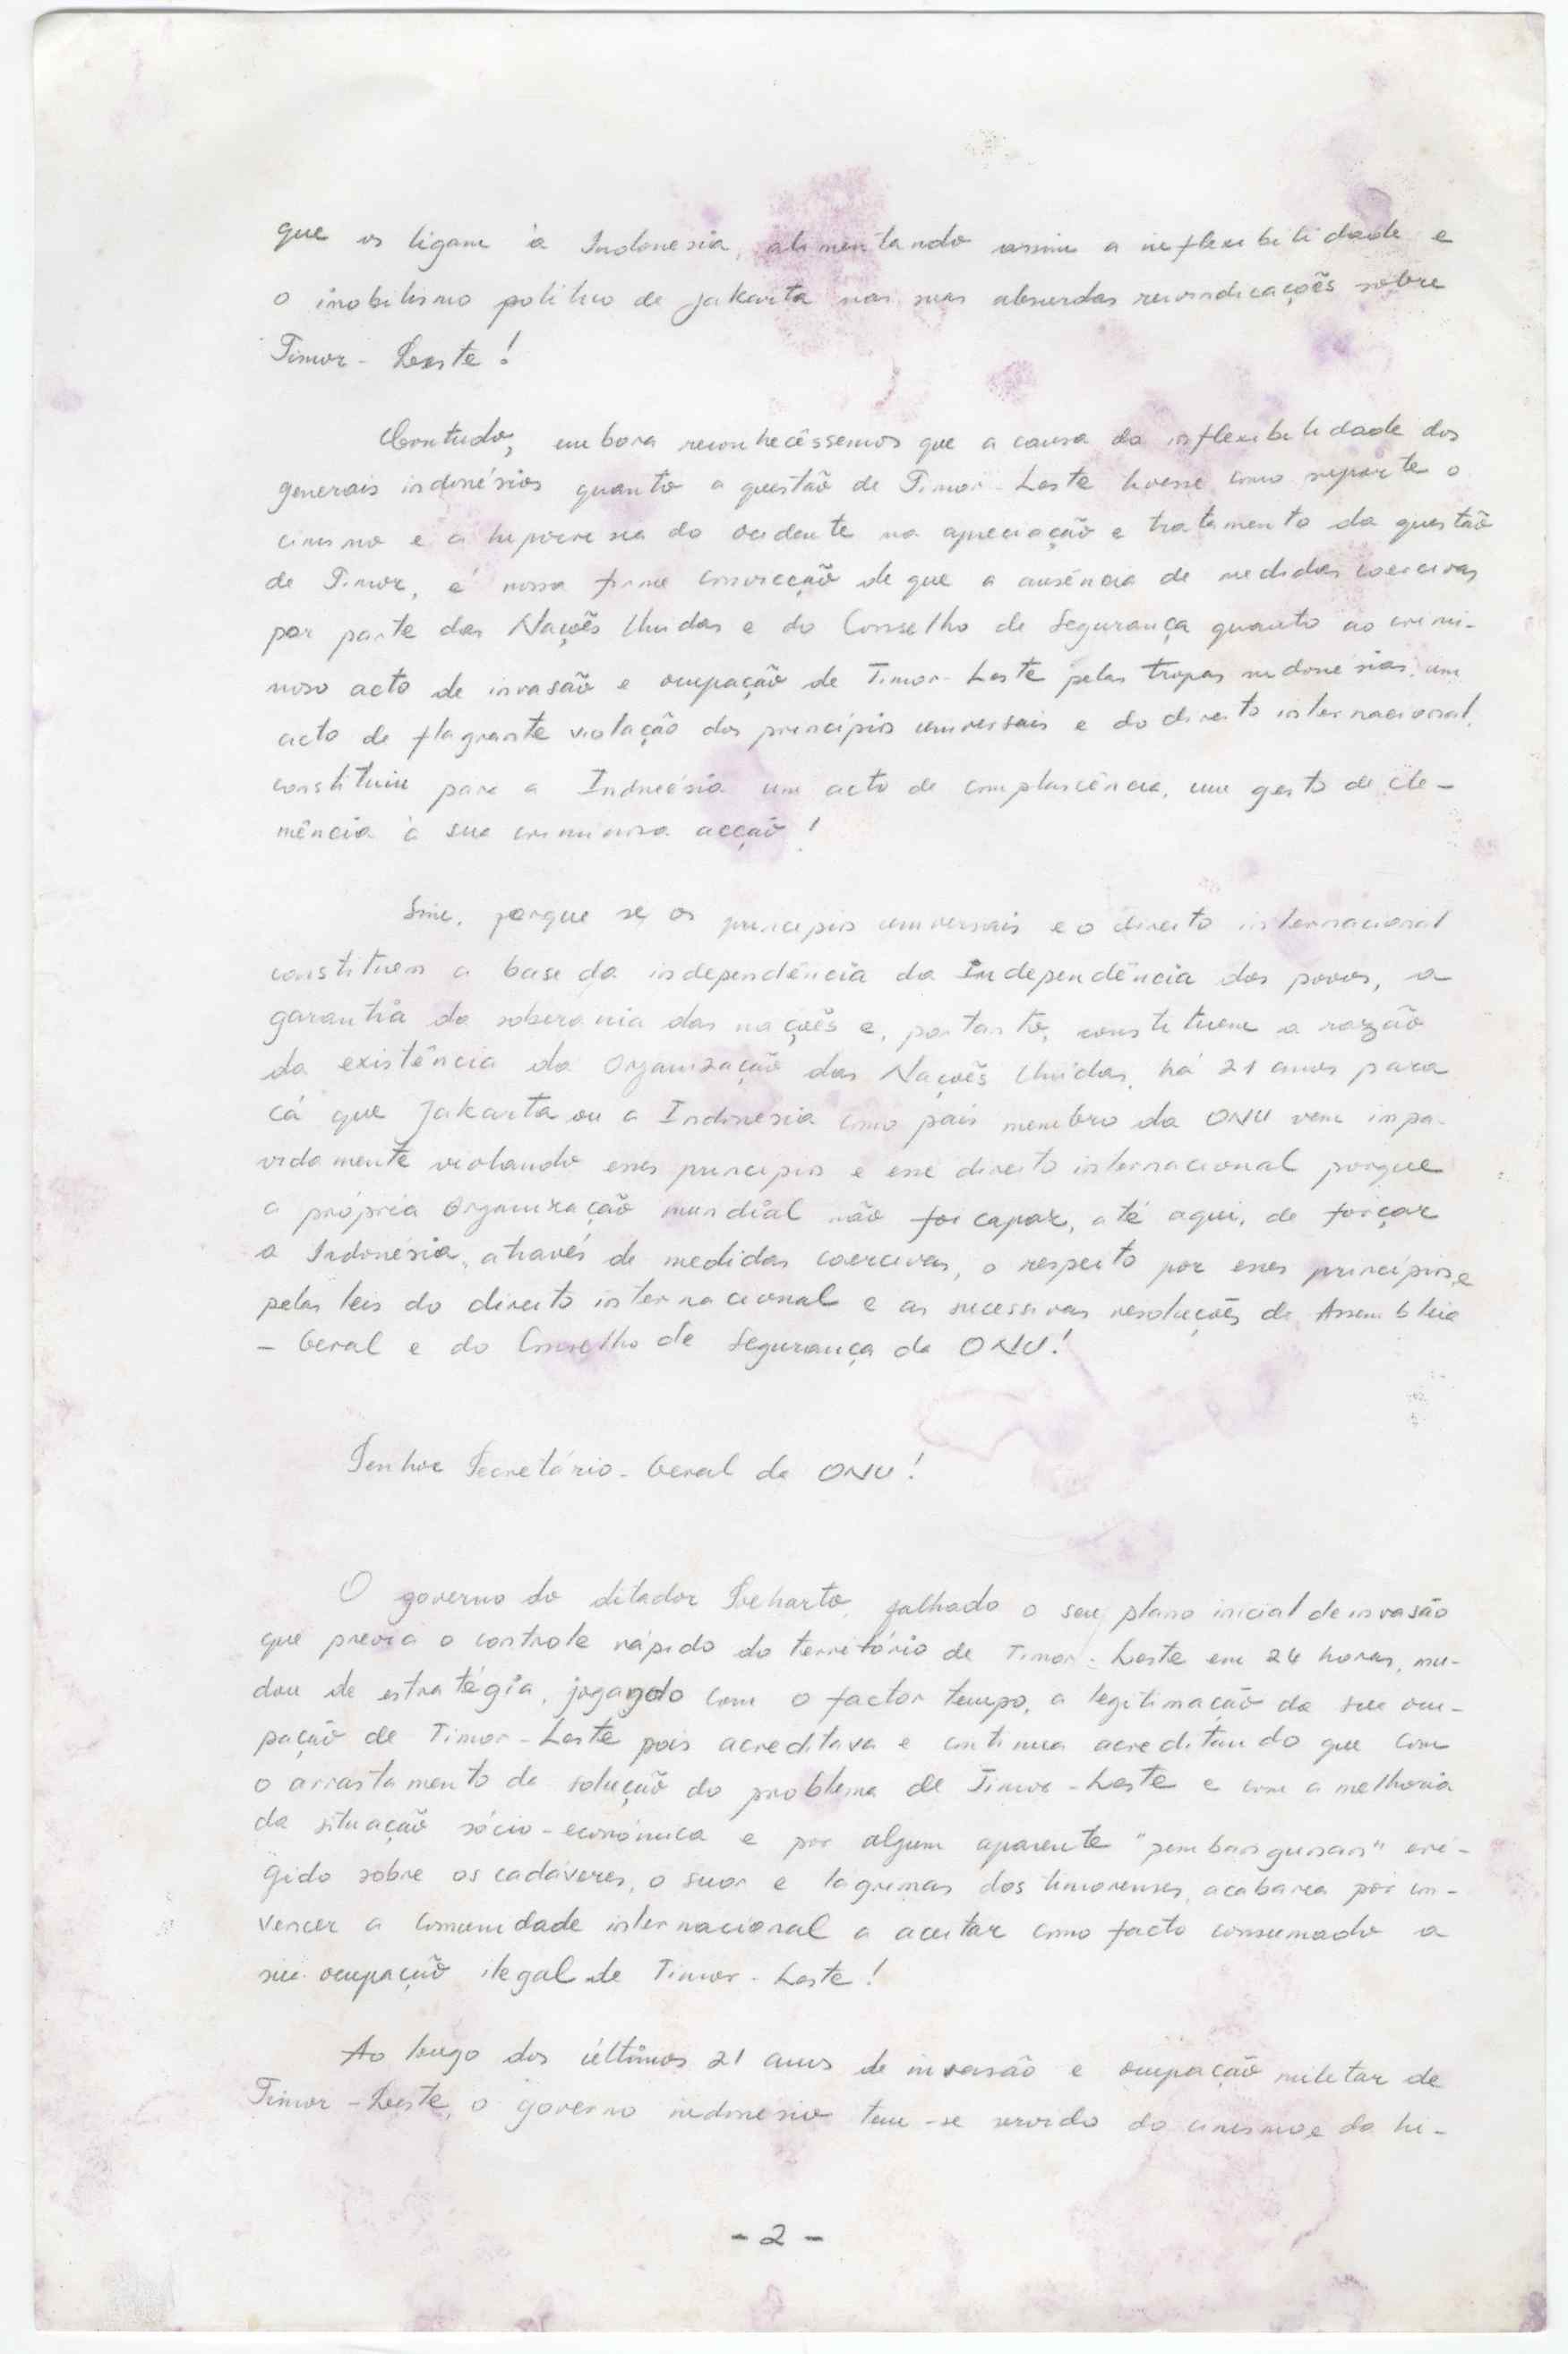 que os ligam à Indonesia, alimentando assim a inflexibilidade e
o imobilismo politico de Jakarta nas suas absurdas reivindicações sobre
Timor - Leste !
Contudo, embora reconhecêssemos que a causa da inflexibilidade dos
generais indonésios quanto a questão de Timor - Leste tivesse como suporte o
cinismo e a hipocresia do ocidente na apreciação e tratamento da questão
de Timor, é nossa firme convicção de que a ausência de medidas coercivas
por parte das Nações Unidas e do Conselho de Segurança quanto ao crimi-
noso acto de invasão e ocupação de Timor - Leste pelas tropas indonésias, um
acto de flagrante violação dos princípios universais e do direito internacional,
constituiu para a Indonésia um acto de complascência, um gesto de cle-
mência à sua criminosa acção !
Sim, porque se os principios universais e o direito internacional
constituem a base da independência da Independência dos povos, a
garantia da soberania das nações e, portanto, constituem a razão
da existência da Organização das Nações Unidas, há 21 anos para
cá que Jakarta ou a Indonesia como país membro da ONU vem impa-
vidamente violando esses principios e esse direito internacional porque
a própria Organização mundial não foi capaz, até aqui, de forçar
a Indonésia, através de medidas coercivas, o respeito por esses princípios e
pelas leis do direito internacional e as sucessivas resoluções da Assembleia
- Geral e do Conselho de Segurança da ONU !
Senhor Secretário - Geral da ONU !
O governo do ditador Suharto, falhado o seu plano inicial de invasão
que previa o controle rápido do território de Timor - Leste em 24 horas, mu-
dou de estratégia, jogando com o factor tempo, a legitimação da sua ocu-
pação de Timor - Leste pois acreditava e continua acreditando que com
o arrastamento da solução do problema de Timor - Leste e com a melhoria
da situação sócio - económica e por algum aparente "pembangunan" eri-
gido sobre os cadáveres, o suor e lágrimas dos timorenses, acabaria por con-
vencer a comunidade internacional a aceitar como facto consumado a
sua ocupação ilegal de Timor - Leste !
Ao longo dos últimos 21 anos de invasão e ocupação militar de
Timor - Leste, o governo indonesio tem - se servido do cinismo e da hi-
- 2 -